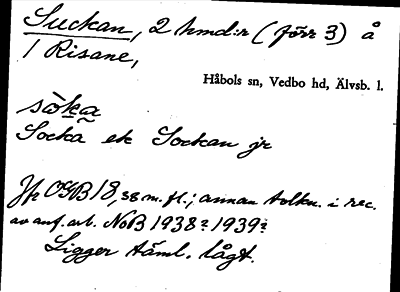 Suckan, 2 hmd:r (förr 3) å
1 Risane,
Håbols sn, Vedbo hd, Älvsb. l.
sòka
Socka ek Sockan jr
Jfr OGB 18, 58 m. fl.; annan tolkn. i rec.
av anf. arb. NoB 1938: 1939:
Ligger täml. lågt.